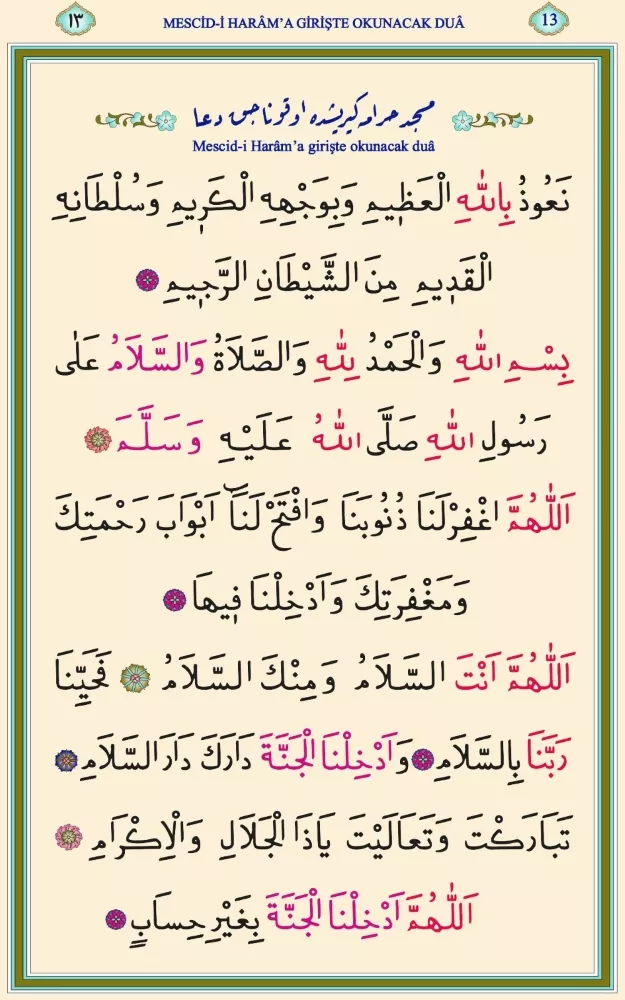 ١٣ MESCİD-İ HARÂM’A GİRİŞTE OKUNACAK DUÂ 13
مسجد حرامه كيريشده اوقوناجق دعا
Mescid-i Harâm’a girişte okunacak duâ
نَعُوذُ بِاللّٰهِ الْعَظِيمِ وَبِوَجْهِهِ الْكَرِيمِ وَسُلْطَانِهِ
الْقَدِيمِ مِنَ الشَّيْطَانِ الرَّجِيمِ
بِسْمِ اللّٰهِ وَالْحَمْدُ لِلّٰهِ وَالصَّلَاةُ وَالسَّلَامُ عَلٰى
رَسُولِ اللّٰهِ صَلَّى اللّٰهُ عَلَيْهِ وَسَلَّمَ
اَللّٰهُمَّ اغْفِرْلَنَا ذُنُوبَنَا وَافْتَحْ لَنَآ اَبْوَابَ رَحْمَتِكَ
وَمَغْفِرَتِكَ وَاَدْخِلْنَا فِيهَا
اَللّٰهُمَّ اَنْتَ السَّلَامُ وَمِنْكَ السَّلَامُ فَحَيِّنَا
رَبَّنَا بِالسَّلَامِ وَاَدْخِلْنَا الْجَنَّةَ دَارَكَ دَارَ السَّلَامِ
تَبَارَكْتَ وَتَعَالَيْتَ يَاذَا الْجَلَالِ وَالْاِكْرَامِ
اَللّٰهُمَّ اَدْخِلْنَا الْجَنَّةَ بِغَيْرِ حِسَابٍ